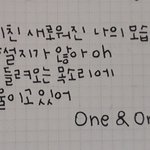 친 새로워진 나의 모습
설지가 않아 oh
들려오는 목소리에
울이고 있어
One & On